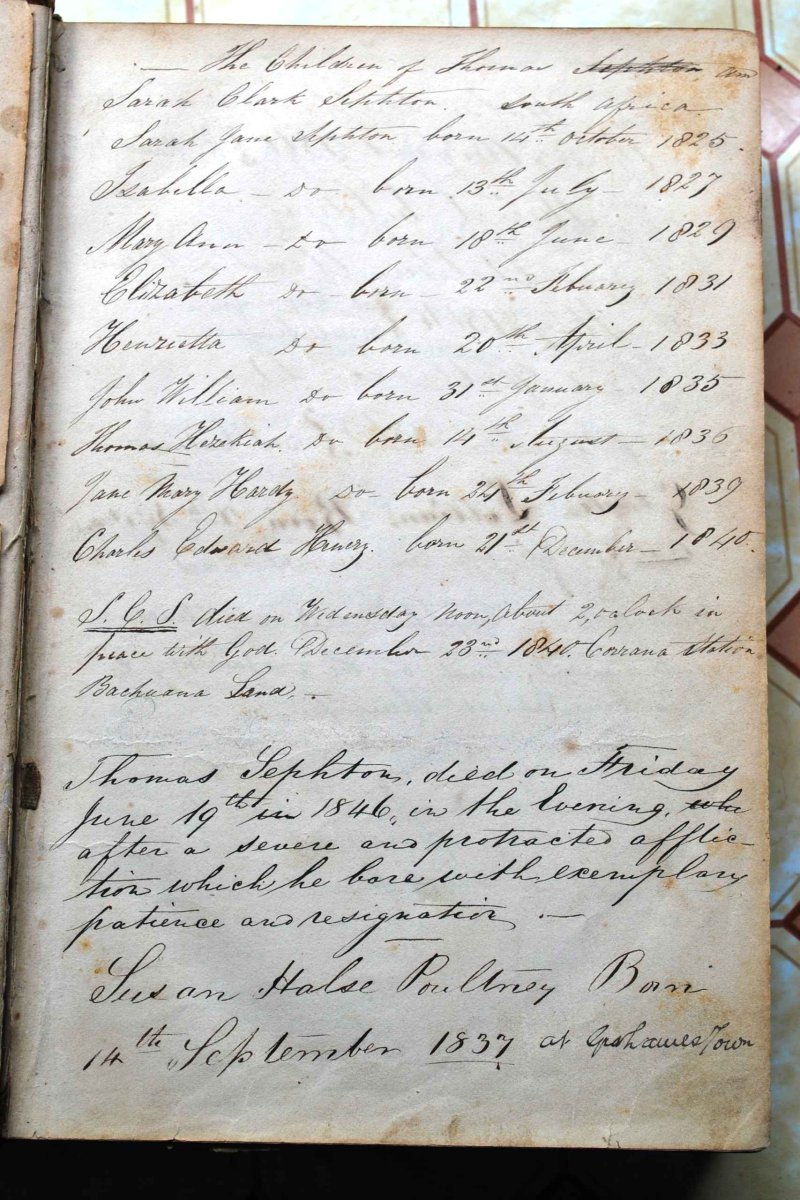 — The Children of Thomas Sephton and
Sarah Clark Sephton. South Africa
Sarah Jane Sephton born 14th October 1825.
Isabella — Do born 13th July — 1827
Mary Ann — Do born 18th June — 1829
Elizabeth Do — born — 22nd Febuary 1831
Henrietta Do born 20th April — 1833
John William Do born 31st January — 1835
Thomas Hezekiah. Do born 14th August — 1836
Jane Mary Hardy Do — born 24th Febuary — 1839
Charles Edward Henery. born 21st December — 1840.
S. C. S. died on Wedensday noon, about 2, oclock in
peace with God. December 23rd 1840. Corrana Station
Bachuana Land. —
Thomas Sephton, died on Friday
June 19th in 1846, in the Evening, who
after a severe and protracted afflic-
tion which he bare with exemplary
patience and resignation. —
Susan Halse Poultney Born
14th September 1837 at Town